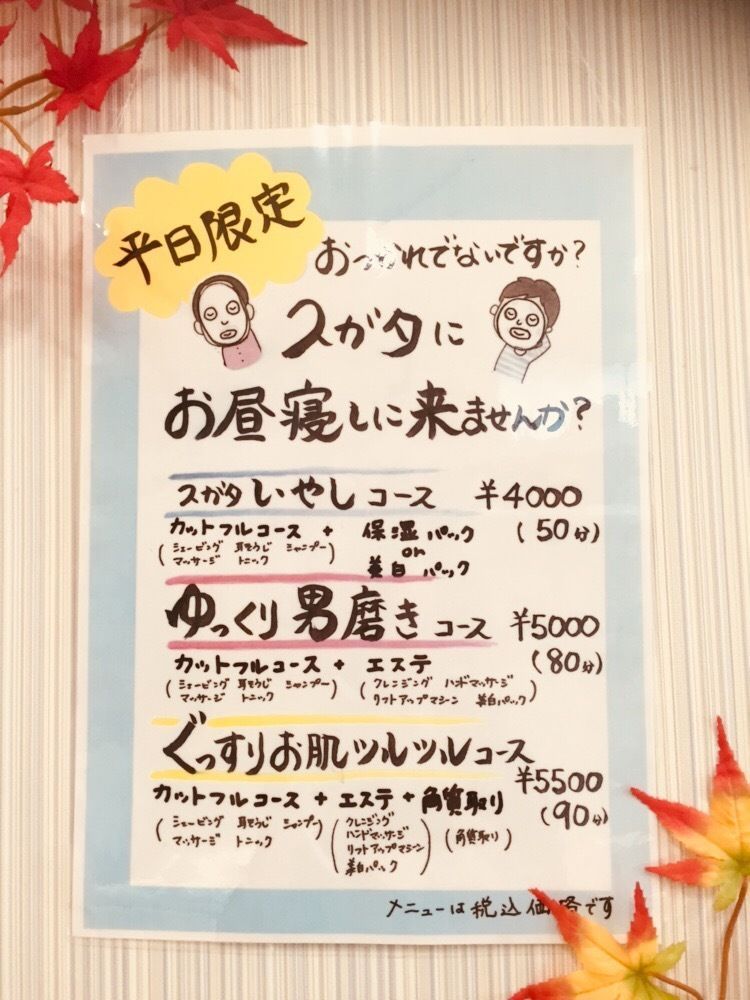 平日限定
おつかれでないですか?
スガタに
お昼寝しに来ませんか?
スガタいやしコース ¥4000
カットフルコース + 保湿パック (50分)
(シェービング 耳そうじ シャンプー or
マッサージ トニック) 美白パック
ゆっくり男磨きコース ¥5000
カットフルコース + エステ (80分)
(シェービング 耳そうじ シャンプー) (クレンジング ハンドマッサージ
マッサージ トニック リフトアップマシーン 美白パック)
ぐっすりお肌ツルツルコース
¥5500
カットフルコース + エステ + 角質取り (90分)
(シェービング 耳そうじ シャンプー) (クレンジング
マッサージ トニック ハンドマッサージ (角質取り)
リフトアップマシーン
美白パック)
メニューは税込価格です